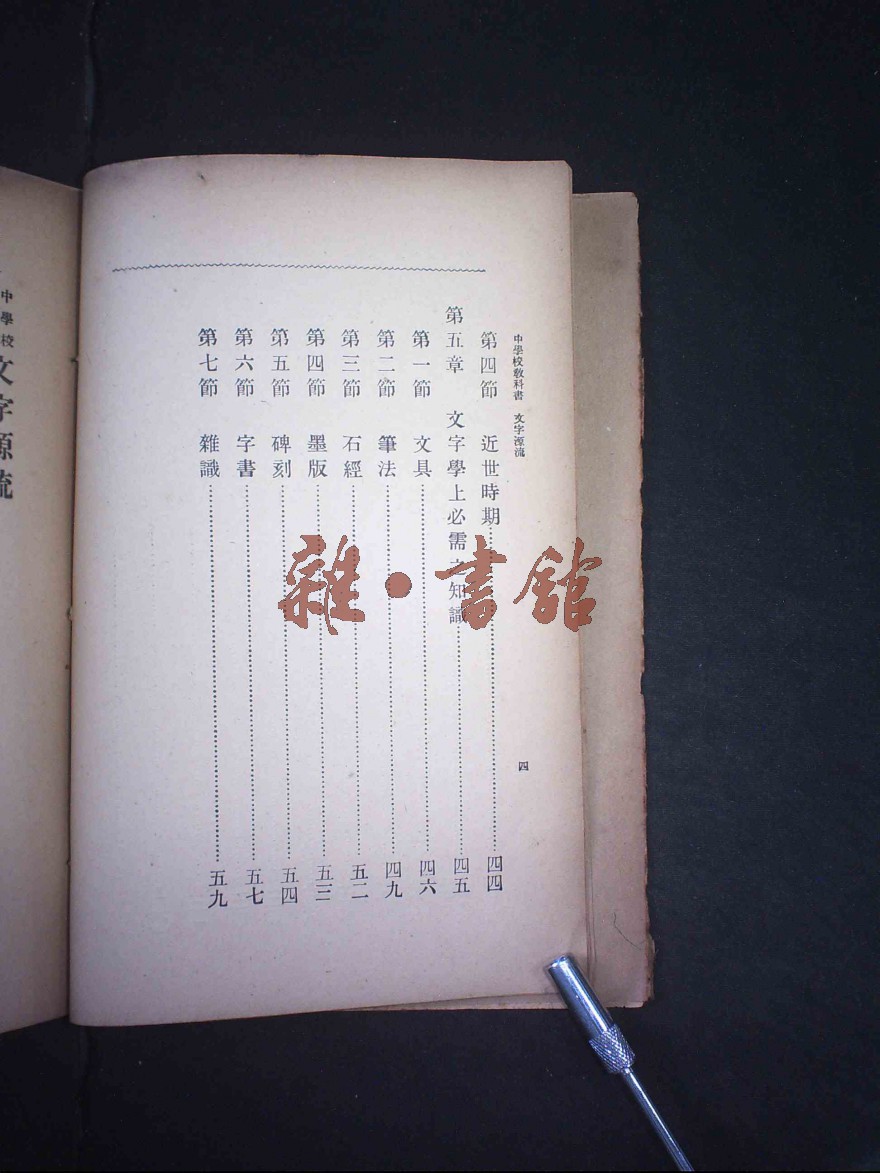 中學校教科書 文字源流
四
第四節 近世時期……四四
第五章 文字學上必需之知識……四五
第一節 文具……四六
第二節 筆法……四九
第三節 石經……五二
第四節 墨版……五三
第五節 碑刻……五四
第六節 字書……五七
第七節 雜識……五九
中學校
文字源流
雜·書館